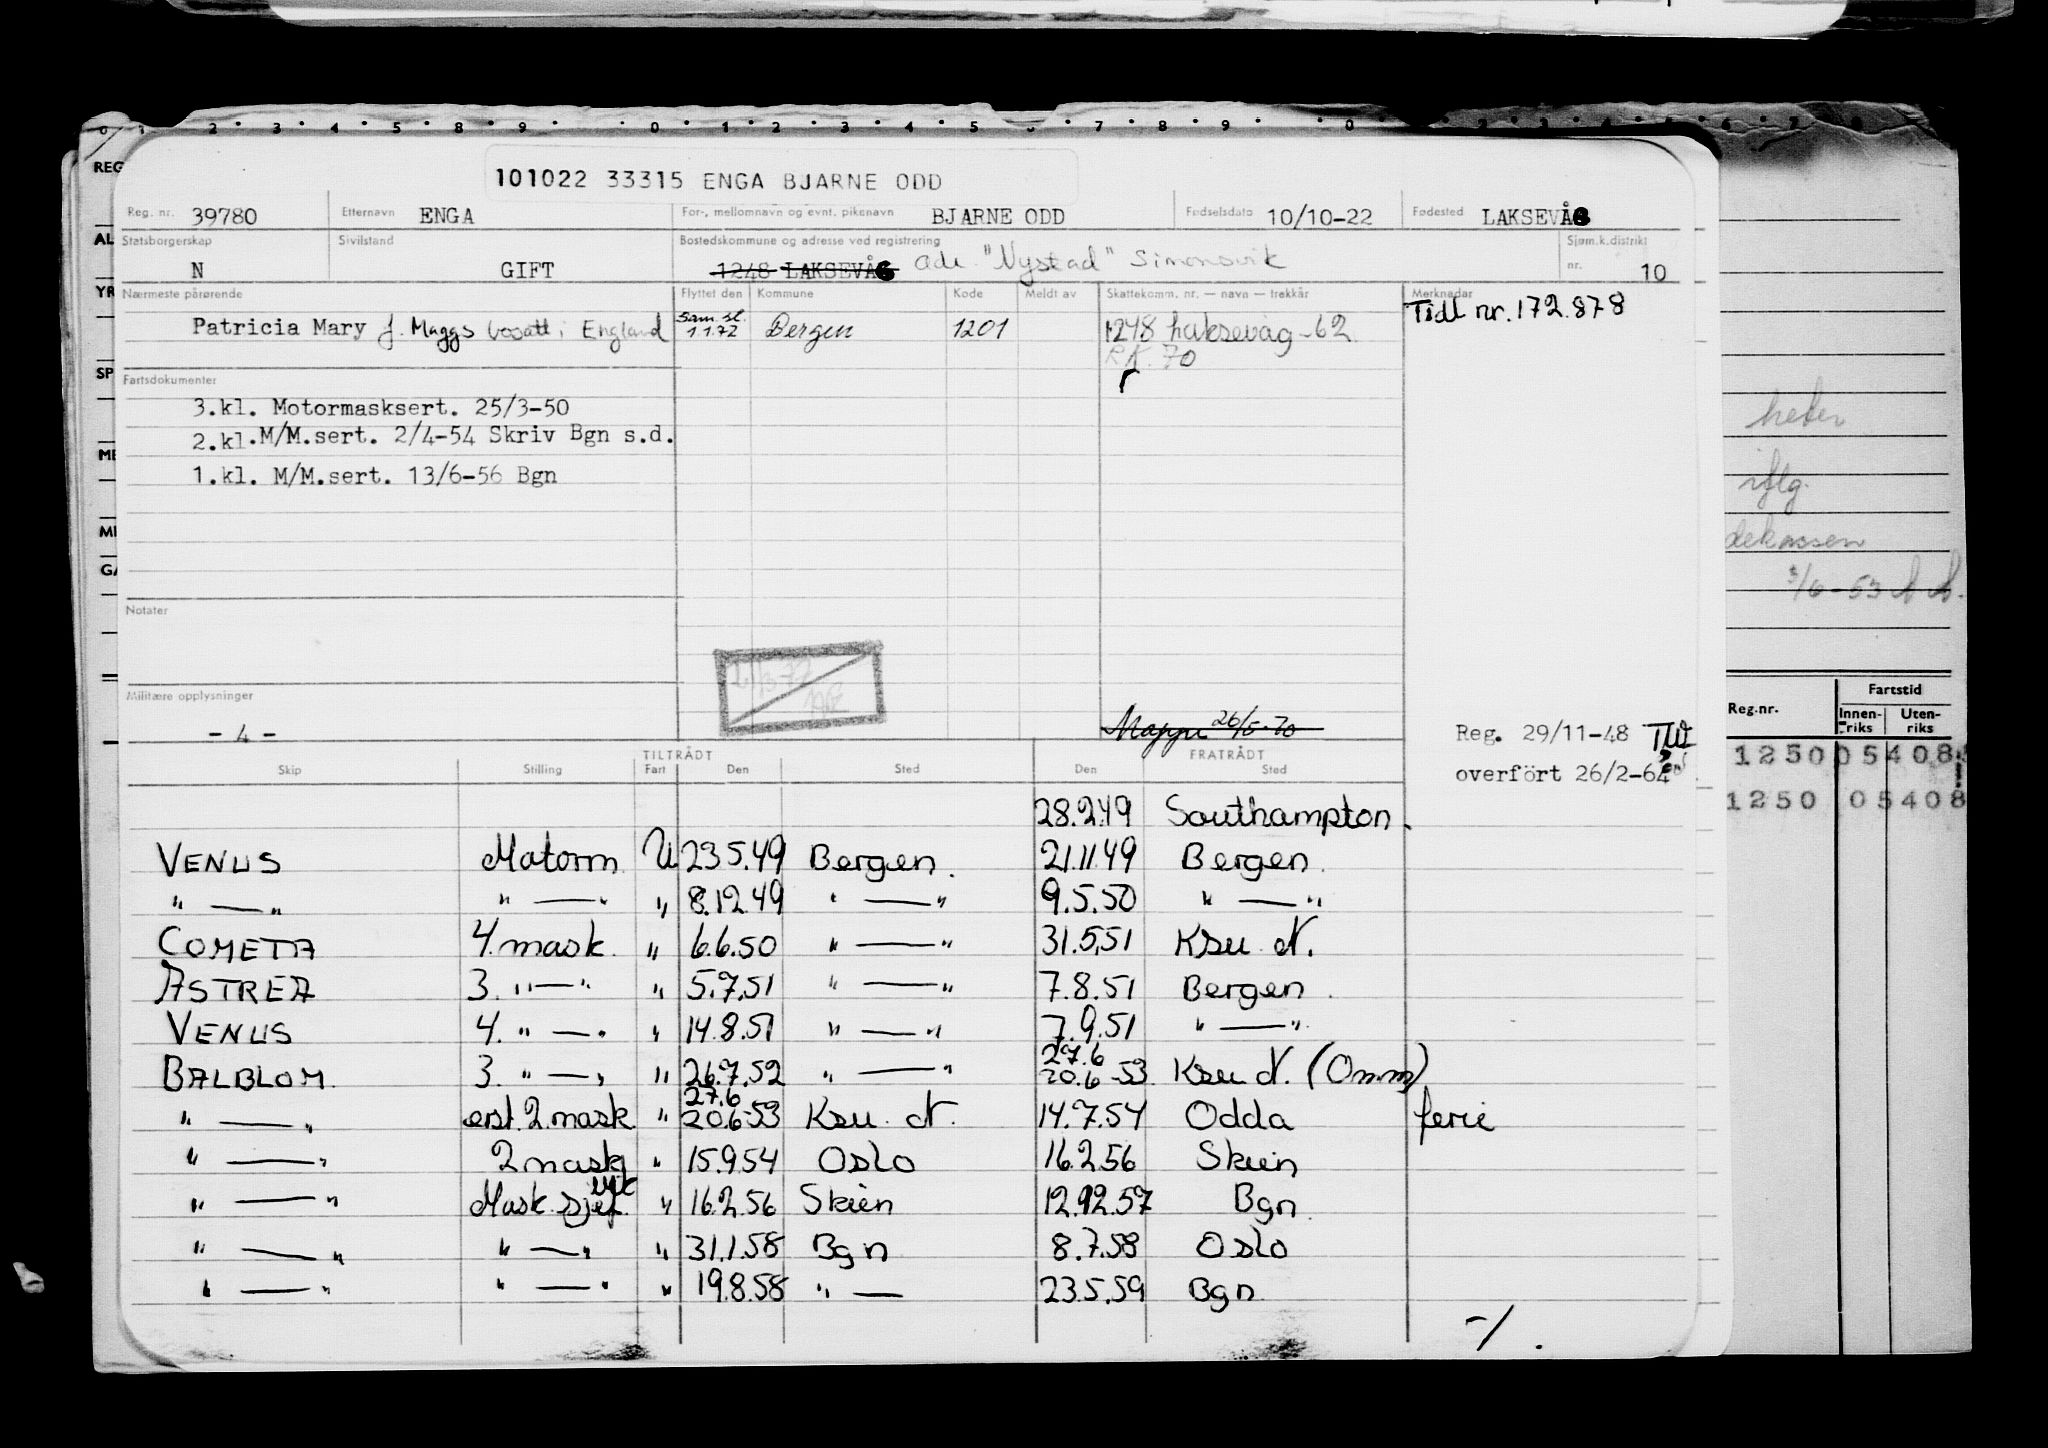 101022 33315 ENGA BJARNE ODD
Reg. nr. 39780 Etternavn ENGA For-, mellomnavn og evnt. pikenavn BJARNE ODD Fødselsdato 10/10-22 Fødested LAKSEVÅG
Statsborgerskap Sivilstand Bostedskommune og adresse ved registrering Sjøm.k.distrikt
N GIFT 1248 LAKSEVÅG Adr. "Nystad" Simonsvik nr. 10
Nærmeste pårørende Flyttet den Kommune Kode Meldt av Skattekomm. nr. — navn — trekkår Merknader
Tidl nr. 172.878
Patricia Mary f. Maggs bosatt i England Sam.sl. 1.1.72 Bergen 1201 1248 Laksevåg -62
70
Fartsdokumenter
3.kl. Motormasksert. 25/3-50
2.kl. M/M.sert. 2/4-54 Skriv Bgn s.d.
1.kl. M/M.sert. 13/6-56 Bgn
Notater
Militære opplysninger
- 4 - Mappe 26/5-70 Reg. 29/11-48
overført 26/2-64
TILTRÅDT FRATRÅDT
Skip Stilling Fart Den Sted Den Sted
28.2.49 Southampton.
VENUS Matorm U 23.5.49 Bergen. 21.11.49 Bergen.
" — " " — " " 8.12.49 " — " 9.5.50 " — "
COMETA 4. mask. " 6.6.50 " — " 31.5.51 Ksu. N.
ASTREA 3. " — " " 5.7.51 " — " 7.8.51 Bergen.
VENUS 4. " — " " 14.8.51 " — " 7.9.51 " — "
BALBLOM 3. " — " " 26.7.52 " — " 27.6 20.6-53 Ksu N. (Omm)
" — " erst. 2. mask " 27.6 20.6-53 Ksu. N. 14.7.54 Odda ferie
" — " 2 mask " 15.9.54 Oslo 16.2.56 Skien
" — " Mask. sjef. " 16.2.56 Skien 12.12.57 Bgn
" — " " — " " 31.1.58 Bgn 8.7.58 Oslo
" — " " — " " 19.8.58 " — 23.5.59 Bgn
-/.
REG
AL
YR
SP
ME
MI
GA
iflg.
3/6-53
Reg.nr. Fartstid
Innen-riks Uten-riks
1250 05 408
1250 05408